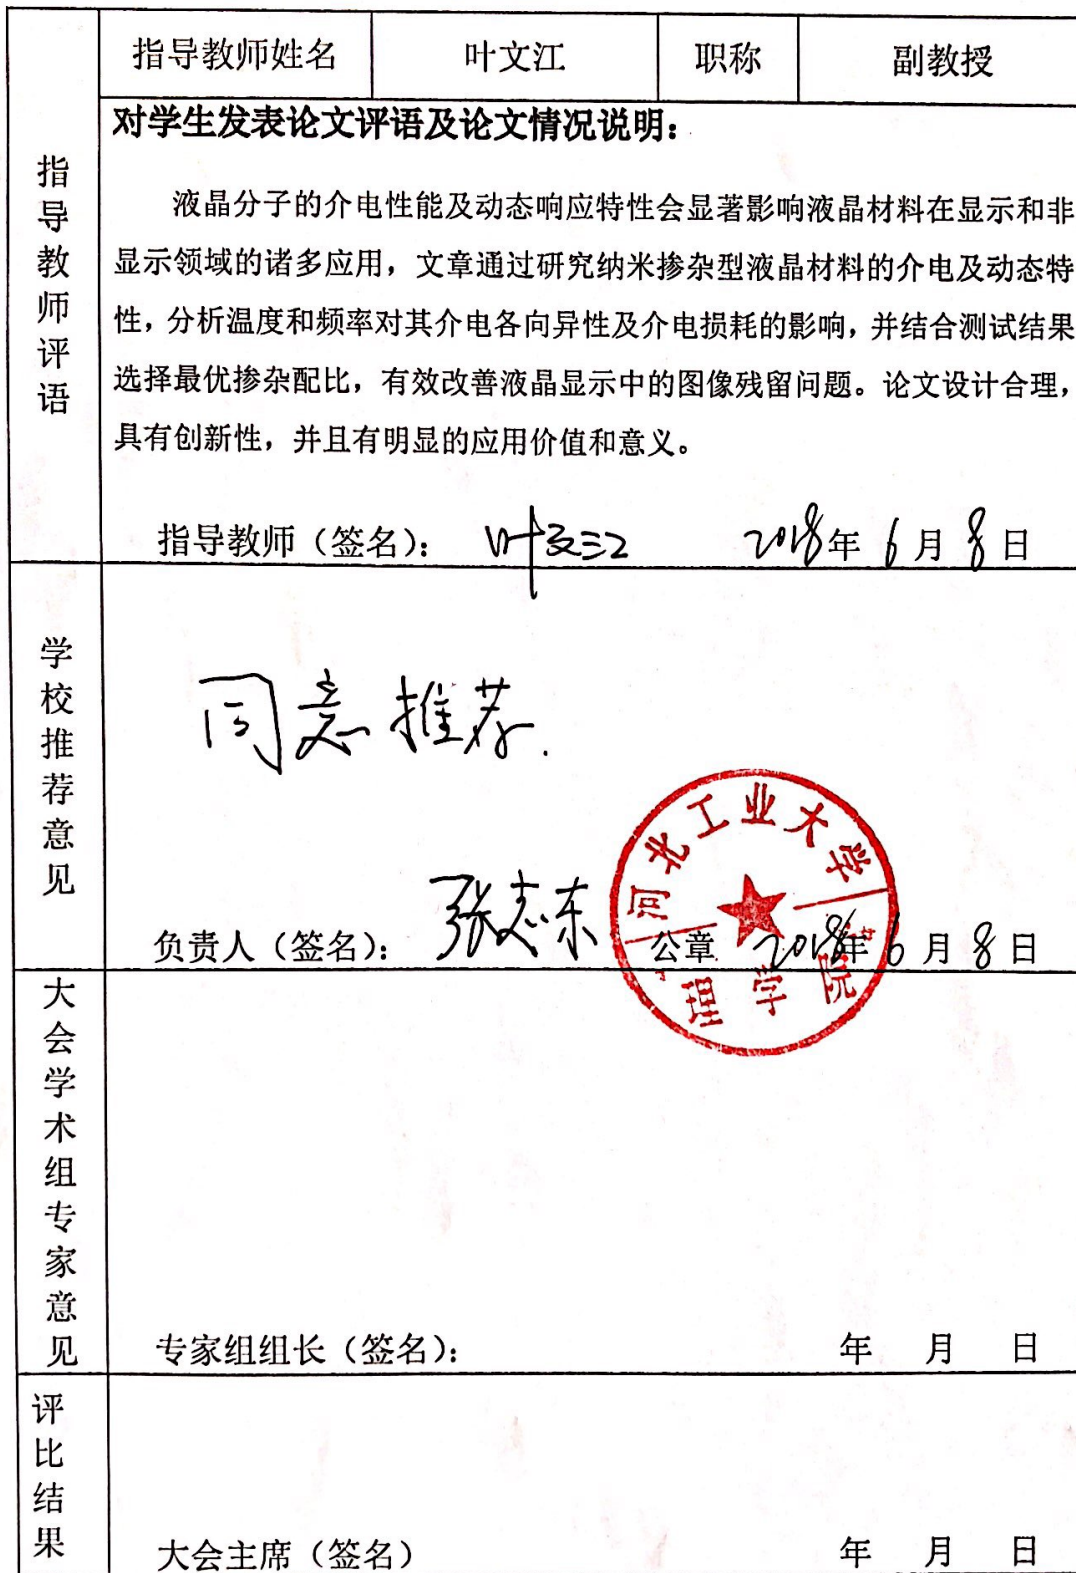 指导教师姓名 叶文江 职称 副教授
指导教师评语
对学生发表论文评语及论文情况说明：
液晶分子的介电性能及动态响应特性会显著影响液晶材料在显示和非
显示领域的诸多应用，文章通过研究纳米掺杂型液晶材料的介电及动态特
性，分析温度和频率对其介电各向异性及介电损耗的影响，并结合测试结果
选择最优掺杂配比，有效改善液晶显示中的图像残留问题。论文设计合理，
具有创新性，并且有明显的应用价值和意义。
指导教师（签名）： 叶文江 2018年 6月 8日
学校推荐意见
同意推荐.
河北工业大学
理学院
负责人（签名）： 张志东 公章 2018年 6月 8日
大会学术组专家意见
专家组组长（签名）： 年 月 日
评比结果
大会主席（签名） 年 月 日